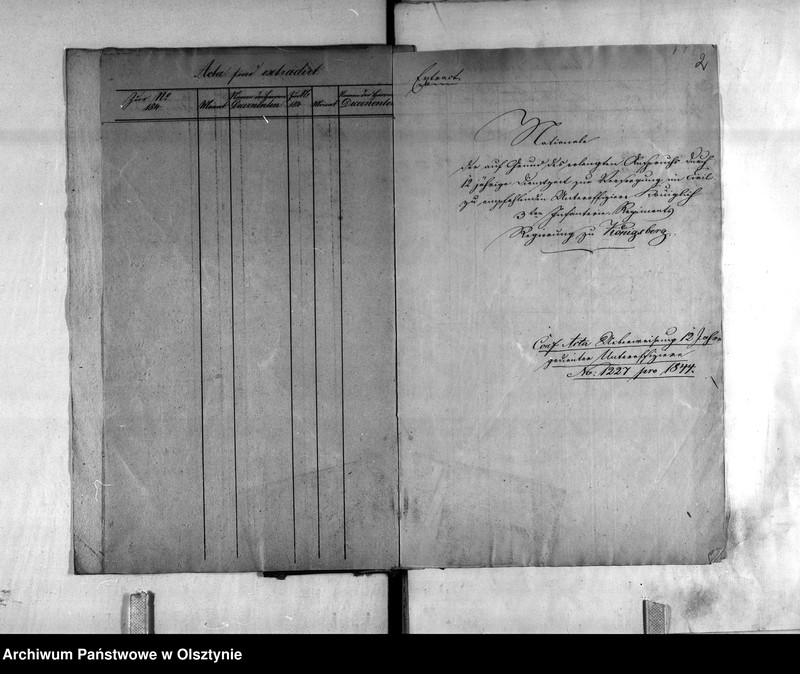 Acta sind extradirt
Jour. No. Monat Namen des Herrn Decernenten Jour. No. Monat Namen des Herrn Decernenten
184 184
2
Extract.
Nationale
der auf Grund des erlangten Anspruchs durch
12 jährige Dienstzeit zur Versorgung im Civil
zu empfehlenden Unteroffiziere Königlich
3ten Infanterie Regiments
Regierung zu Königsberg.
Conf. Acta Ueberweisung 12 Jahr
gedienter Unteroffiziere
No: 1227 pro 1844.
Archiwum Państwowe w Olsztynie